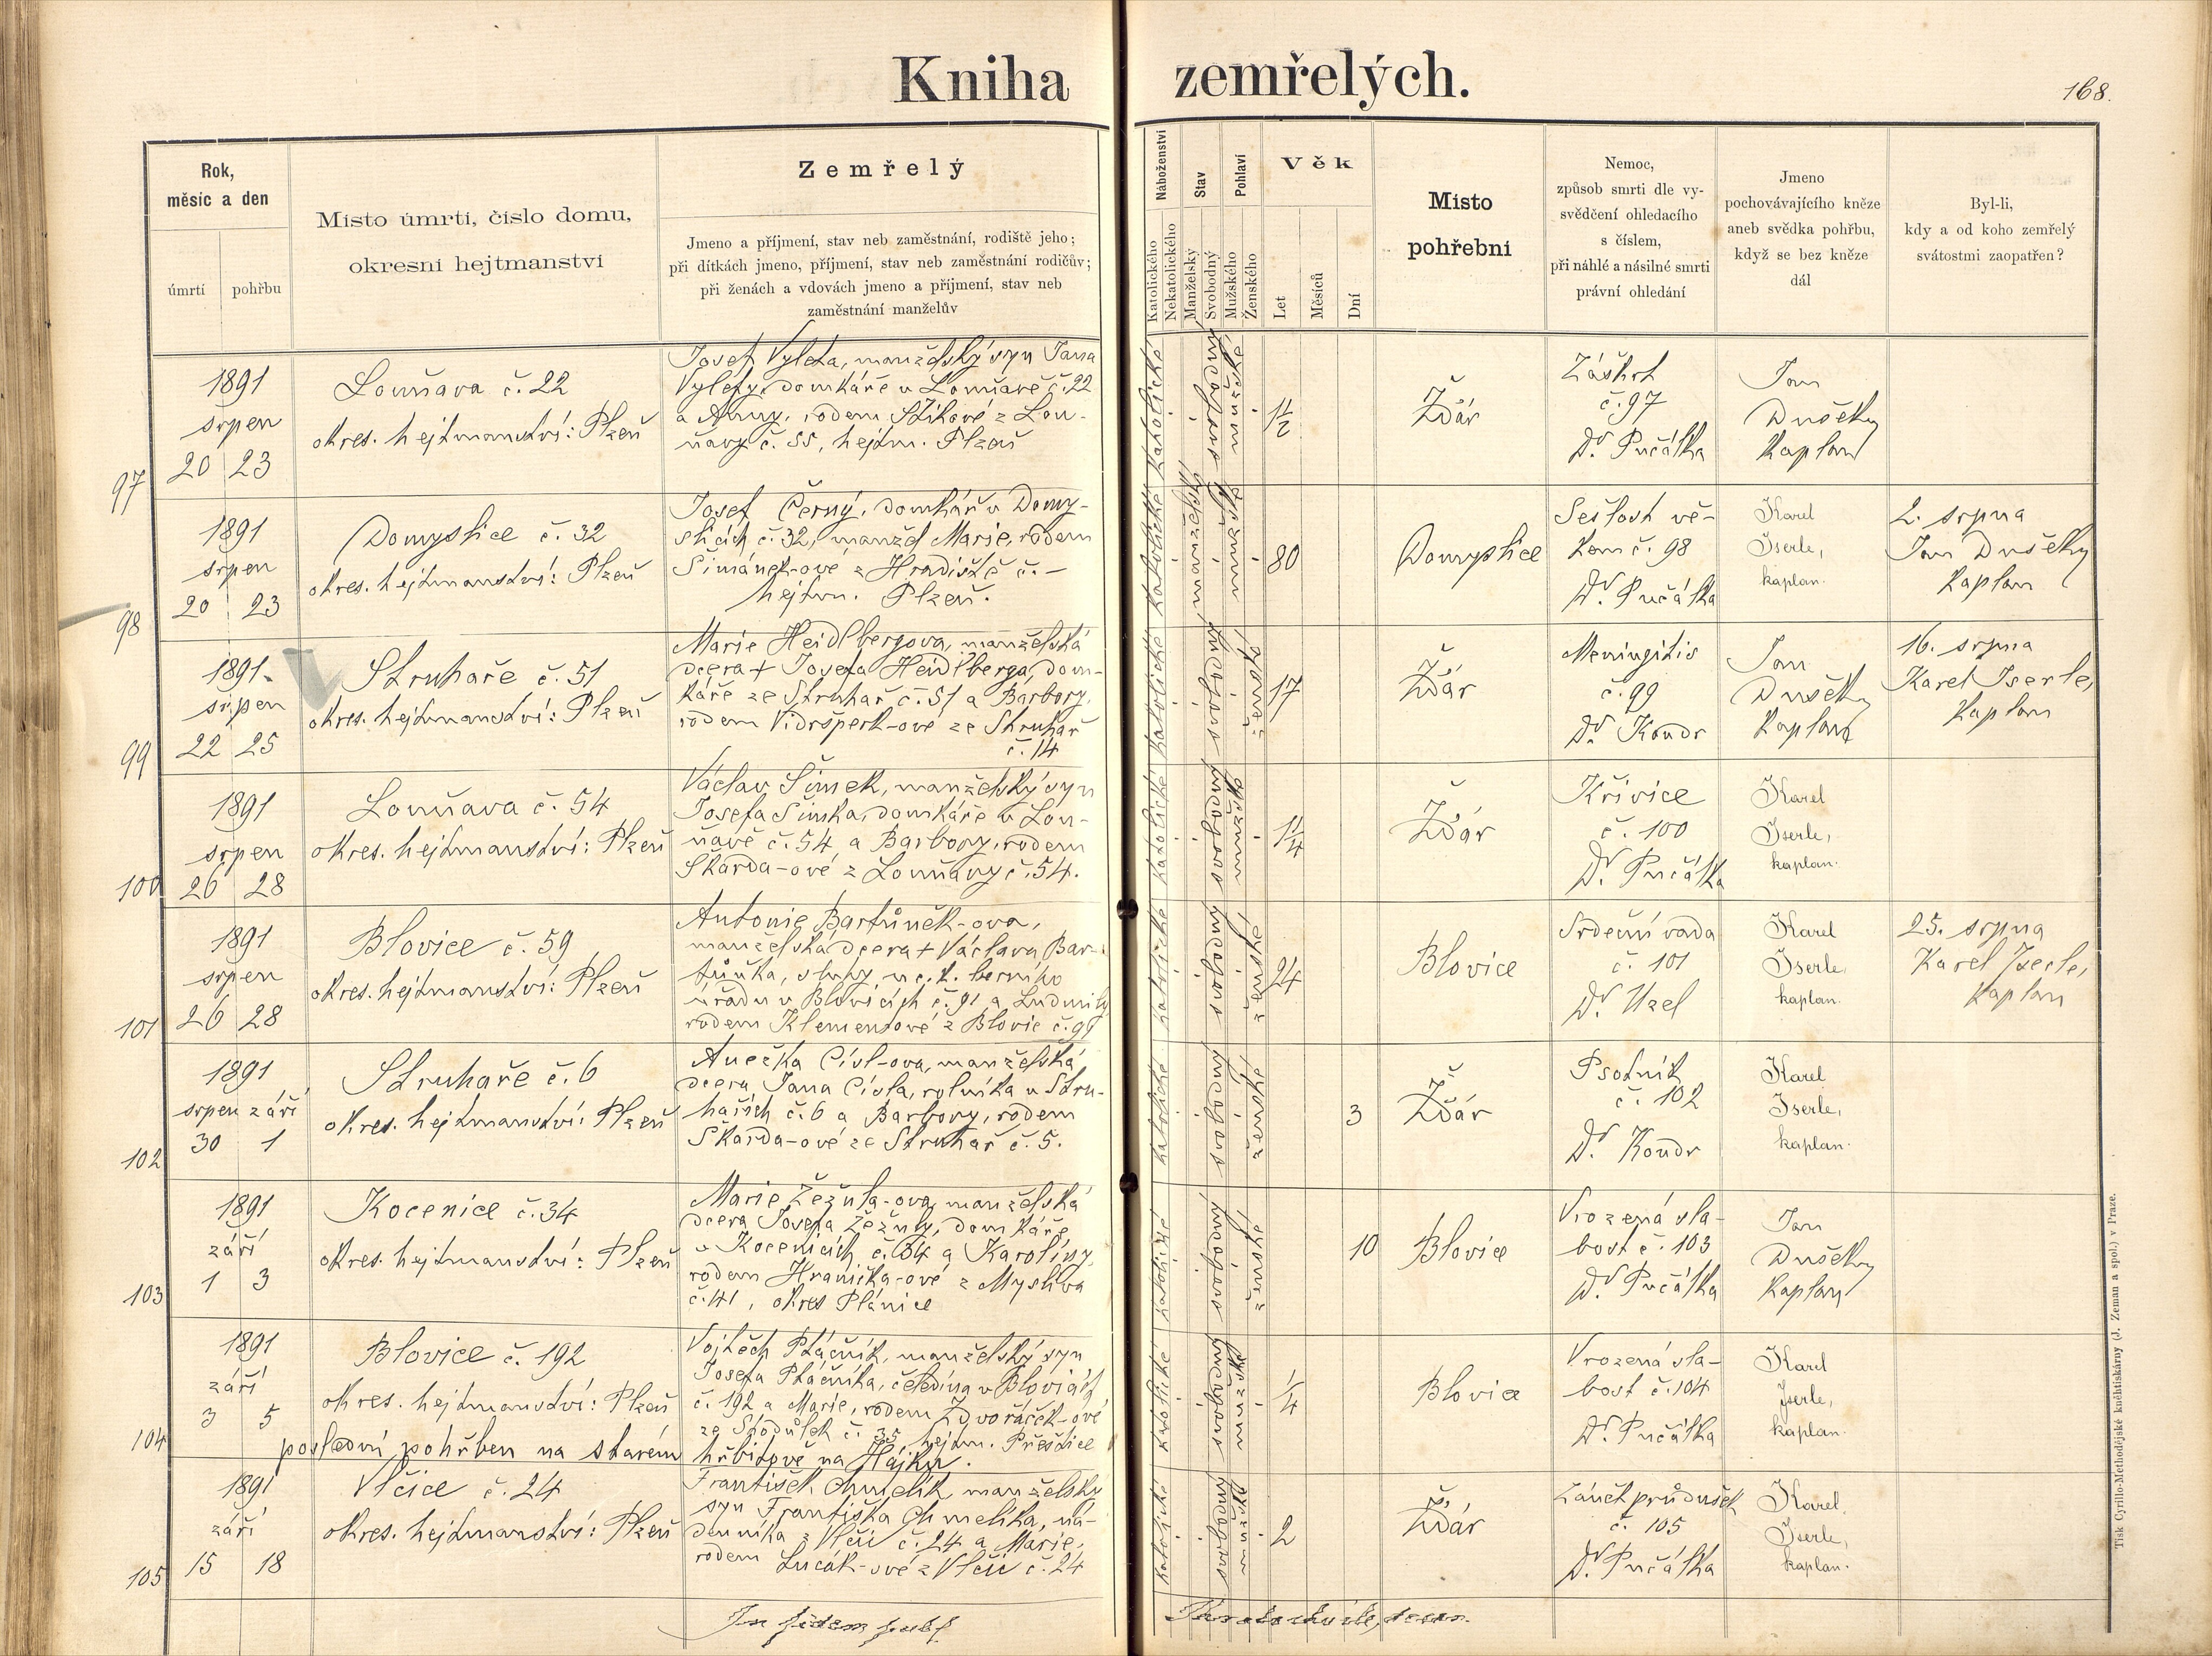 Kniha zemřelých.
168.
Rok,
měsíc a den
úmrtí
pohřbu
Místo úmrtí, číslo domu,
okresní hejtmanství
Zemřelý
Jmeno a příjmení, stav neb zaměstnání, rodiště jeho;
při dítkách jmeno, příjmení, stav neb zaměstnání rodičův;
při ženách a vdovách jmeno a příjmení, stav neb
zaměstnání manželův
Náboženství
Katolického
Nekatolického
Stav
Manželský
Svobodný
Pohlaví
Mužského
Ženského
Věk
Let
Měsíců
Dní
Místo
pohřební
Nemoc,
způsob smrti dle vy-
svědčení ohledacího
s číslem,
při náhlé a násilné smrti
právní ohledání
Jmeno
pochovávajícího kněze
aneb svědka pohřbu,
když se bez kněze
dál
Byl-li,
kdy a od koho zemřelý
svátostmi zaopatřen?
97
1891
srpen
20 23
Louňava č. 22
okres. hejtmanství: Plzeň
Josef Vyleta, manželský syn Jana
Vylety, domkáře v Louňavě č. 22
a Anny, rodem Stikové z Lou-
ňavy č. 55, hejtm. Plzeň
katolické
svobodný
mužské
1½
Žďár
Záškrt
č. 97
Dr. Pučálka
Jan
Dušek
kaplan
98
1891
srpen
20 23
Domyslice č. 32
okres. hejtmanství: Plzeň
Josef Černý, domkář v Domy-
slicích č. 32, manžel Marie, rodem
Šimánek-ové z Hradiště č. –
hejtm. Plzeň.
katolické
mužské
80
Domyslice
Sešlost vě-
kem č. 98
Dr. Pučálka
Karel
Iserle,
kaplan.
2. srpna
Jan Dušek
kaplan
99
1891
srpen
22 25
Struhaře č. 51
okres. hejtmanství: Plzeň
Marie Heidlbergova, manželská
dcera + Josefa Heidlberga, dom-
káře ze Struhař č. 51 a Barbory,
rodem Vidršperk-ové ze Struhař
č. 14
katolické
svobodný
ženské
17
Žďár
Meningitis
č. 99
Dr. Kondr
Jan
Dušek
kaplan
16. srpna
Karel Iserle,
kaplan
100
1891
srpen
26 28
Louňava č. 54
okres. hejtmanství: Plzeň
Václav Šimek, manželský syn
Josefa Šimka, domkáře v Lou-
ňavě č. 54 a Barbory, rodem
Škarda-ové z Louňavy č. 54.
katolické
svobodný
mužské
1¼
Žďár
Křivice
č. 100
Dr. Pučálka
Karel
Iserle,
kaplan.
101
1891
srpen
26 28
Blovice č. 59
okres. hejtmanství: Plzeň
Antonie Bartůněk-ova,
manželská dcera + Václava Bar-
tůňka, sluhy u c. k. berního
úřadu v Blovicích č. 91 a Ludmily
rodem Klementové z Blovic č. 91
katolické
svobodný
ženské
24
Blovice
Srdeční vada
č. 101
Dr. Uzel
Karel
Iserle,
kaplan.
25. srpna
Karel Iserle,
kaplan
102
1891
srpen září
30 1
Struhaře č. 6
okres. hejtmanství: Plzeň
Anežka Císl-ova, manželská
dcera Jana Císla, rolníka v Stru-
hařích č. 6 a Barbory, rodem
Škarda-ové ze Struhař č. 5.
katolické
svobodný
ženské
3
Žďár
Psotník
č. 102
Dr. Kondr
Karel
Iserle,
kaplan.
103
1891
září
1 3
Kocenice č. 34
okres. hejtmanství: Plzeň
Marie Žežula-ova, manželská
dcera Josefa Žežuly, domkáře
v Kocenicích č. 34 a Karolíny
rodem Hranička-ové z Myslíva
č. 41, okres Plánice
katolické
svobodný
ženské
10
Blovice
Vrozená sla-
bost č. 103
Dr. Pučálka
Jan
Dušek
kaplan
104
1891
září
3 5
Blovice č. 192
okres. hejtmanství: Plzeň
Vojtěch Ptáčník, manželský syn
Josefa Ptáčníka, čeledína v Blovicích
č. 192 a Marie, rodem Zdvořáček-ové
ze Stodůlek č. 35 hejtm. Přeštice
poslední pohřben na starém hřbitově na Hájku.
katolické
svobodný
mužské
¼
Blovice
Vrozená sla-
bost č. 104
Dr. Pučálka
Karel
Iserle,
kaplan.
105
1891
září
15 18
Vlčice č. 24
okres. hejtmanství: Plzeň
František Chmelík, manželský
syn Františka Chmelíka, ná-
denníka z Vlčic č. 24 a Marie,
rodem Lucák-ové z Vlčic č. 24
katolické
svobodný
mužské
2
Žďár
Zánět průdušek
č. 105
Dr. Pučálka
Karel
Iserle,
kaplan.
Tisk Cyrillo-Methodějské knihtiskárny (J. Zeman a spol.) v Praze.